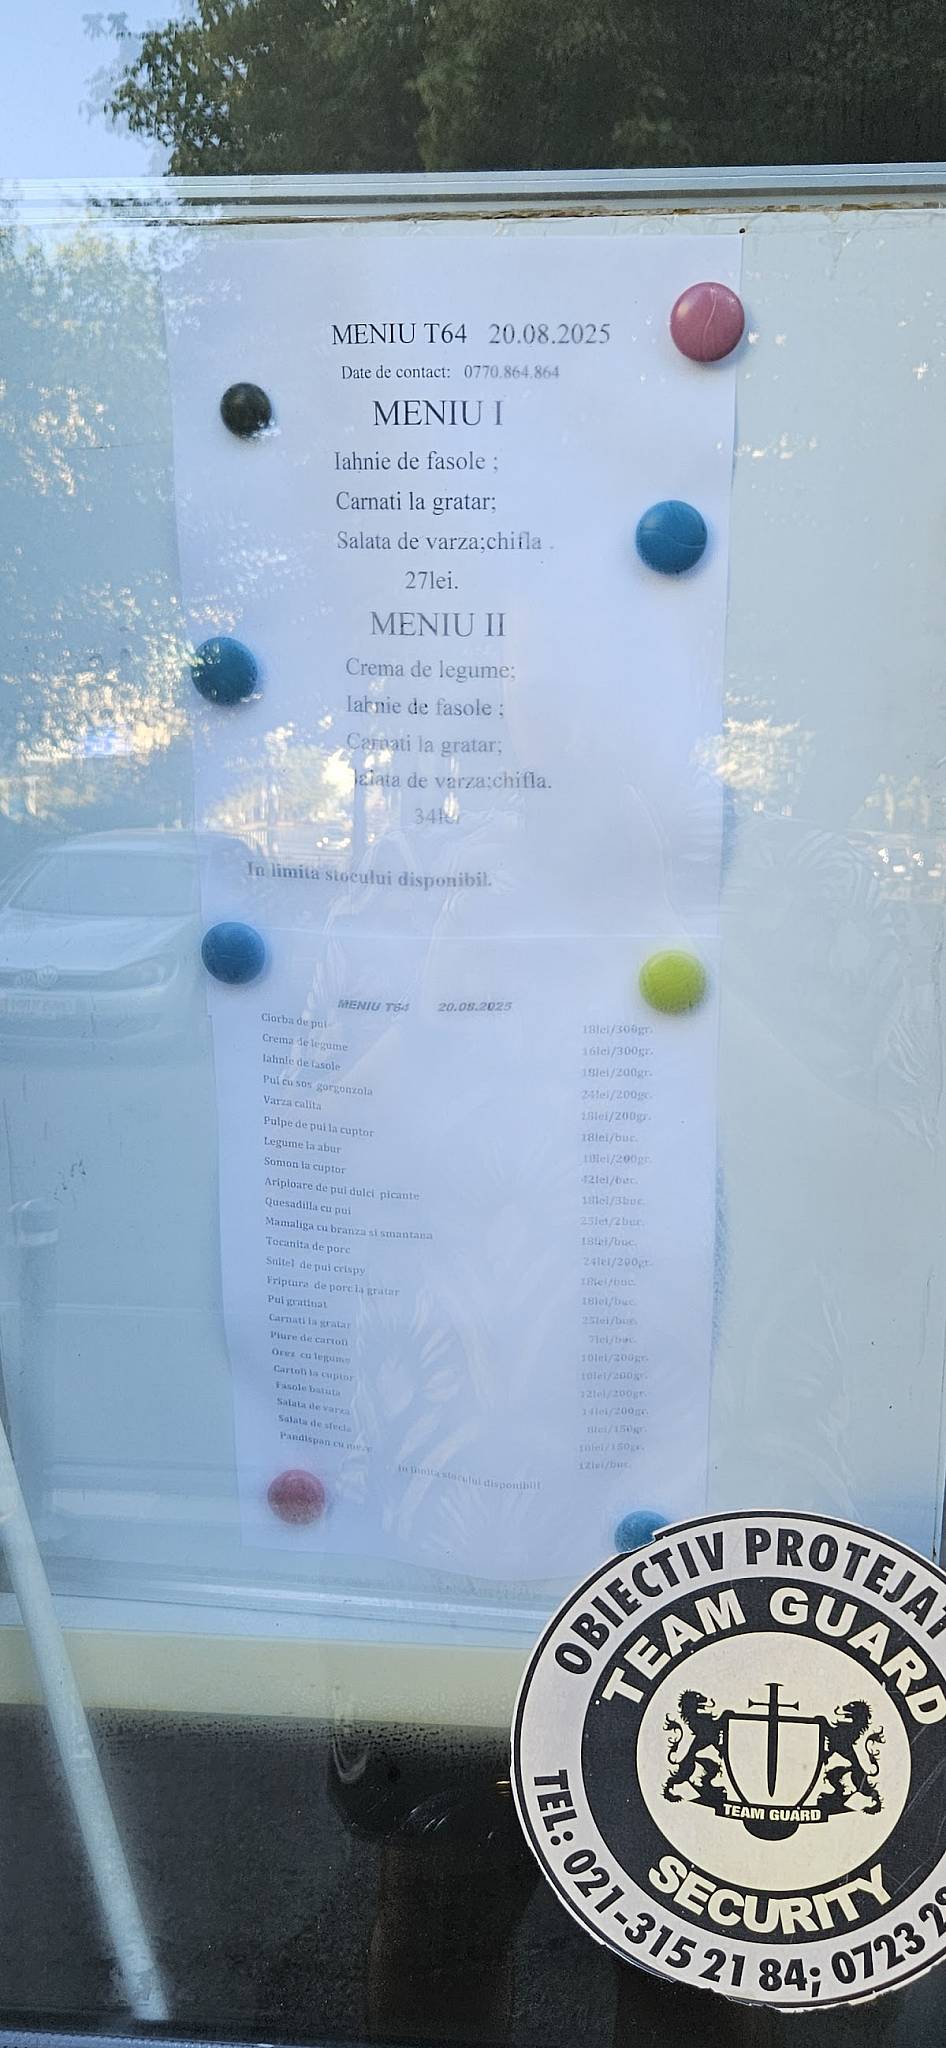 MENIU T64 20.08.2025
Date de contact: 0770.864.864
MENIU I
Iahnie de fasole ;
Carnati la gratar;
Salata de varza;chifla .
27lei.
MENIU II
Crema de legume;
Iahnie de fasole ;
Carnati la gratar;
Salata de varza;chifla.
34lei
In limita stocului disponibil.
MENIU T64 20.08.2025
Ciorba de pui 18lei/300gr.
Crema de legume 16lei/300gr.
Iahnie de fasole 18lei/200gr.
Pui cu sos gorgonzola 24lei/200gr.
Varza calita 18lei/200gr.
Pulpe de pui la cuptor 18lei/buc.
Legume la abur 18lei/200gr.
Somon la cuptor 42lei/buc.
Aripioare de pui dulci picante 18lei/3buc.
Quesadilla cu pui 25lei/2buc.
Mamaliga cu branza si smantana 18lei/buc.
Tocanita de porc 24lei/200gr.
Snitel de pui crispy 18lei/buc.
Friptura de porc la gratar 18lei/buc.
Pui gratinat 25lei/buc.
Carnati la gratar 7lei/buc.
Piure de cartofi 10lei/200gr.
Orez cu legume 10lei/200gr.
Cartofi la cuptor 12lei/200gr.
Fasole batuta 14lei/200gr.
Salata de varza 8lei/150gr.
Salata de sfecla 10lei/150gr.
Pandispan cu mere 12lei/buc.
In limita stocului disponibil!
OBIECTIV PROTEJAT
TEAM GUARD
TEAM GUARD
SECURITY
TEL: 021-315 21 84; 0723 2